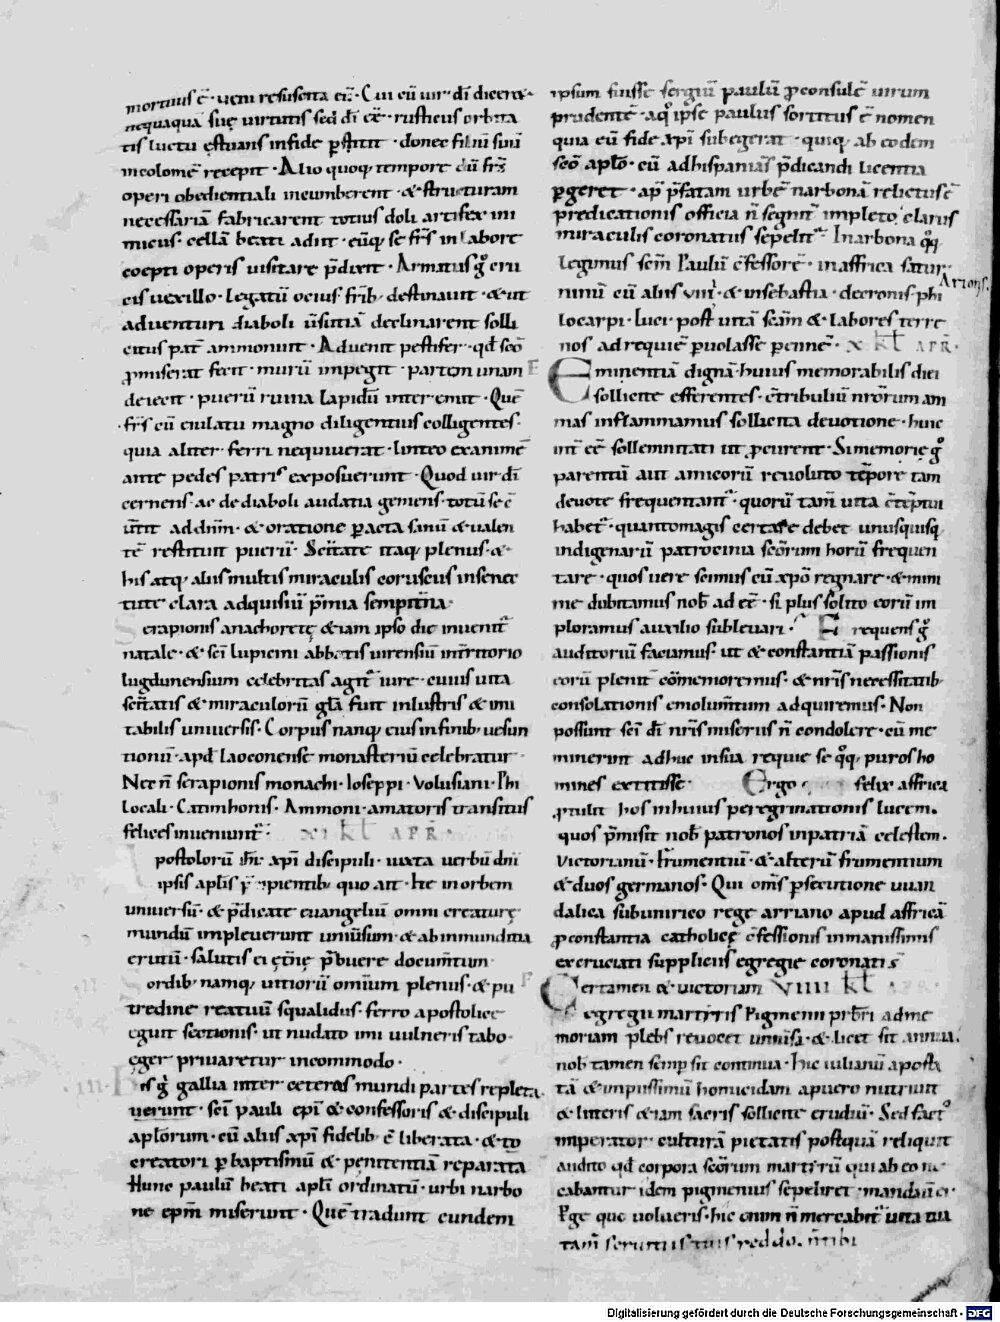 mortuus ē· ueni resuscita eū· Cui cū uir dī diceret
nequaquā suę uirtutis sed dī eē· rusticus orbita
tis luctu ęstuans infide ꝑstitit· donec filiū suū
incolomē recepit· Alio quoq; tempore cū frs̄
operi obedientiali incumberent· & structuram
necessariā fabricarent totius doli artifex ini
micus· cellā beati adiit· eūq; se frīs in labore
coepti operis uisitare p̄dixit· Armatus ḡ cru
cis uexillo· legatū ocius frīb; destinauit· & ut
aduenturi diaboli ūsutiā declinarent solli
citus pat̄ ammonuit· Aduenit pestifer· qđ seo
ꝓmiserat fecit· murū impegit· partem unam
deiecit· puerū ruina lapidū interemit· Quē
frs̄ cū eiulatu magno diligentius colligentes·
quia aliter ferri nequiuerat· linteo examinē
ante pedes patris exposuerunt· Quod uir dī
cernens· ac de diaboli audatia gemens· totū se c̄
ūtit ad dnm̄· & oratione ꝑacta sanū & ualen
tē restituit puerū· Sc̄itate itaq; plenus· &
his atq; aliis multis miraculis coruscus in senec
tute clara adquisiuit p̄mia sempit̄na·
Serapionis anachoretę &iam ipso die inuenit̄
natale· & sc̄i lupicini abbatis uirensiū in t̄ritorio
lugdunensium celebritas agit̄ iure· cuius uita
sc̄itatis & miraculorū gl̄a fuit inlustris & imi
tabilis uniuersis· Corpus nanq; eius in finib; uesun
tionū· apđ laoconense monasteriū celebratur
Nec n̄ serapionis monachi· Ioseppi· Volusiani· Phi
locali· Catimhonis· Ammoni· amatoris transitus
felices inueniunt̄· XI kł APR·
Apostolorū ih̄u xp̄i discipuli· iuxta uerbū dn̄i
ipsis apl̄is p̄cipientib; quo ait· Ite in orbem
uniuersū· & p̄dicate euangeliū omni creaturę
mundū impleuerunt uniūsum· & ab inmunditia
erutū· salutis ei ętn̄ę p̄buere documt̄um·
Sordib; namq; uitiorū omīum plenus· & pu
tredine reatuū squalidus· ferro apostolice
eguit sectionis· ut nudato imi uulneris tabo
ęger priuaretur incommodo·
His ḡ gallia inter ceteras mundi partes repleta
uerunt· sc̄i pauli ep̄i & confessoris & discipuli
apl̄orum· cū aliis xp̄i fidelib; ē liberata· & to
creatori ꝑ baptismū & penitentiā reparata
Hunc paulū beati apl̄i ordinatū· urbi narbo
ne ep̄m̄ miserunt· Quē tradunt eundem
ipsum fuisse sergiū paulū ꝓconsulē uirum
prudentē· a qͦ ipse paulus sortitus ē nomen
quia eū fide xp̄i subegerat· quiq; ab eodem
sc̄o apl̄o· cū ad hispanias p̄dicandi licentia
ꝑgeret· ap̄ p̄fatam urbē narbonā relictus ē
predicationis officia n̄ segnit̄ impleto, clarus
miraculis coronatus sepelit̄· In arbona qͦq;
legimus sc̄m̄ Paulū c̄fessorē· in affrica satur
Arionis·
ninū cū aliis VIIII· & in sebastia· decronis· phi
locarpi· Luci· post uitā sc̄am & labores terre
nos ad requiē ꝑuolasse ꝑennē· X kł APR·
Eminentiā dignā huius memorabilis diei
sollicite efferentes· c̄tribuliū nr̄orum am
mas inflammamus sollicita deuotione· hinc
int̄ eē sollemnitati ut ꝓcurent· Si memorię ḡ
parentū aut amicorū reuoluto tēpore tam
deuote frequentant̄· quorū tam̄ uita c̄tēptui
habet̄· quanto magis certare debet unusquisq;
indigenarū patrocinia sc̄orum horū frequen
tare· quos uere scimus cū xp̄o regnare· & mini
me dubitamus nob̄ ad eē· si plus solito eorū im
ploramus auxilio subleuari· Frequens ḡ
auditoriū faciamus· ut & constantiā passionis
eorū plenit̄ cōmemoremus· & nr̄is necessitatib;
consolationis emolumt̄um adquiremus· Non
possunt sc̄i dī nr̄is miseriis n̄ condolere· cū me
minerint adhuc in sua requie se qͦq; puros ho
mines extitisse· Ergo felix affrica
ꝓtulit hos in huius peregrinationis lucem·
quos p̄misit nob̄ patronos in patriā celestem·
Victorianū· frumentiū· & alterū frumentium
& duos germanos· Qui om̄s ꝑsecutione uuan
dalica sub unirico rege arriano apud affricā
ꝓ constantia catholicę c̄fessionis inmanissimis
excruciati suppliciis egregie coronatis
Certamen & uictoriam VIIII kł APR·
egregii martiris Pigmenii prb̄ri ad me
moriam plebs reuocet uniūsa· & licet sit annua·
nob̄ tamen semꝑ sit continua· Hic iulianū aposta
tā & impiissimū homicidam a puero nutriuit
& litteris &iam sacris sollicite erudiuit· Sed fact⁹
imperator· culturā pietatis postquā reliquit
audito qđ corpora sc̄orum martirū qui ab eo ne
cabantur idem pigmenius sepeliret· mandauit ei·
Ꝑge quo uolueris· hic enim n̄ mercabit̄ uita tua
tam̄ seruitiis tuis reddo· n̄ tibi
Digitalisierung gefördert durch die Deutsche Forschungsgemeinschaft - DFG